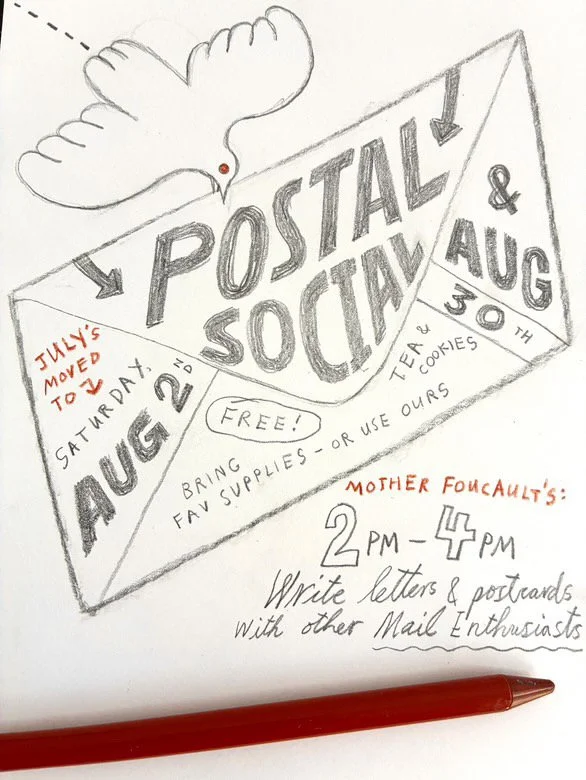 POSTAL
SOCIAL
JULY'S
MOVED
TO
SATURDAY,
AUG 2ND
&
AUG
30TH
FREE!
TEA &
COOKIES
BRING
FAV SUPPLIES - OR USE OURS
MOTHER FOUCAULT'S:
2PM - 4PM
Write letters & postcards
with other Mail Enthusiasts